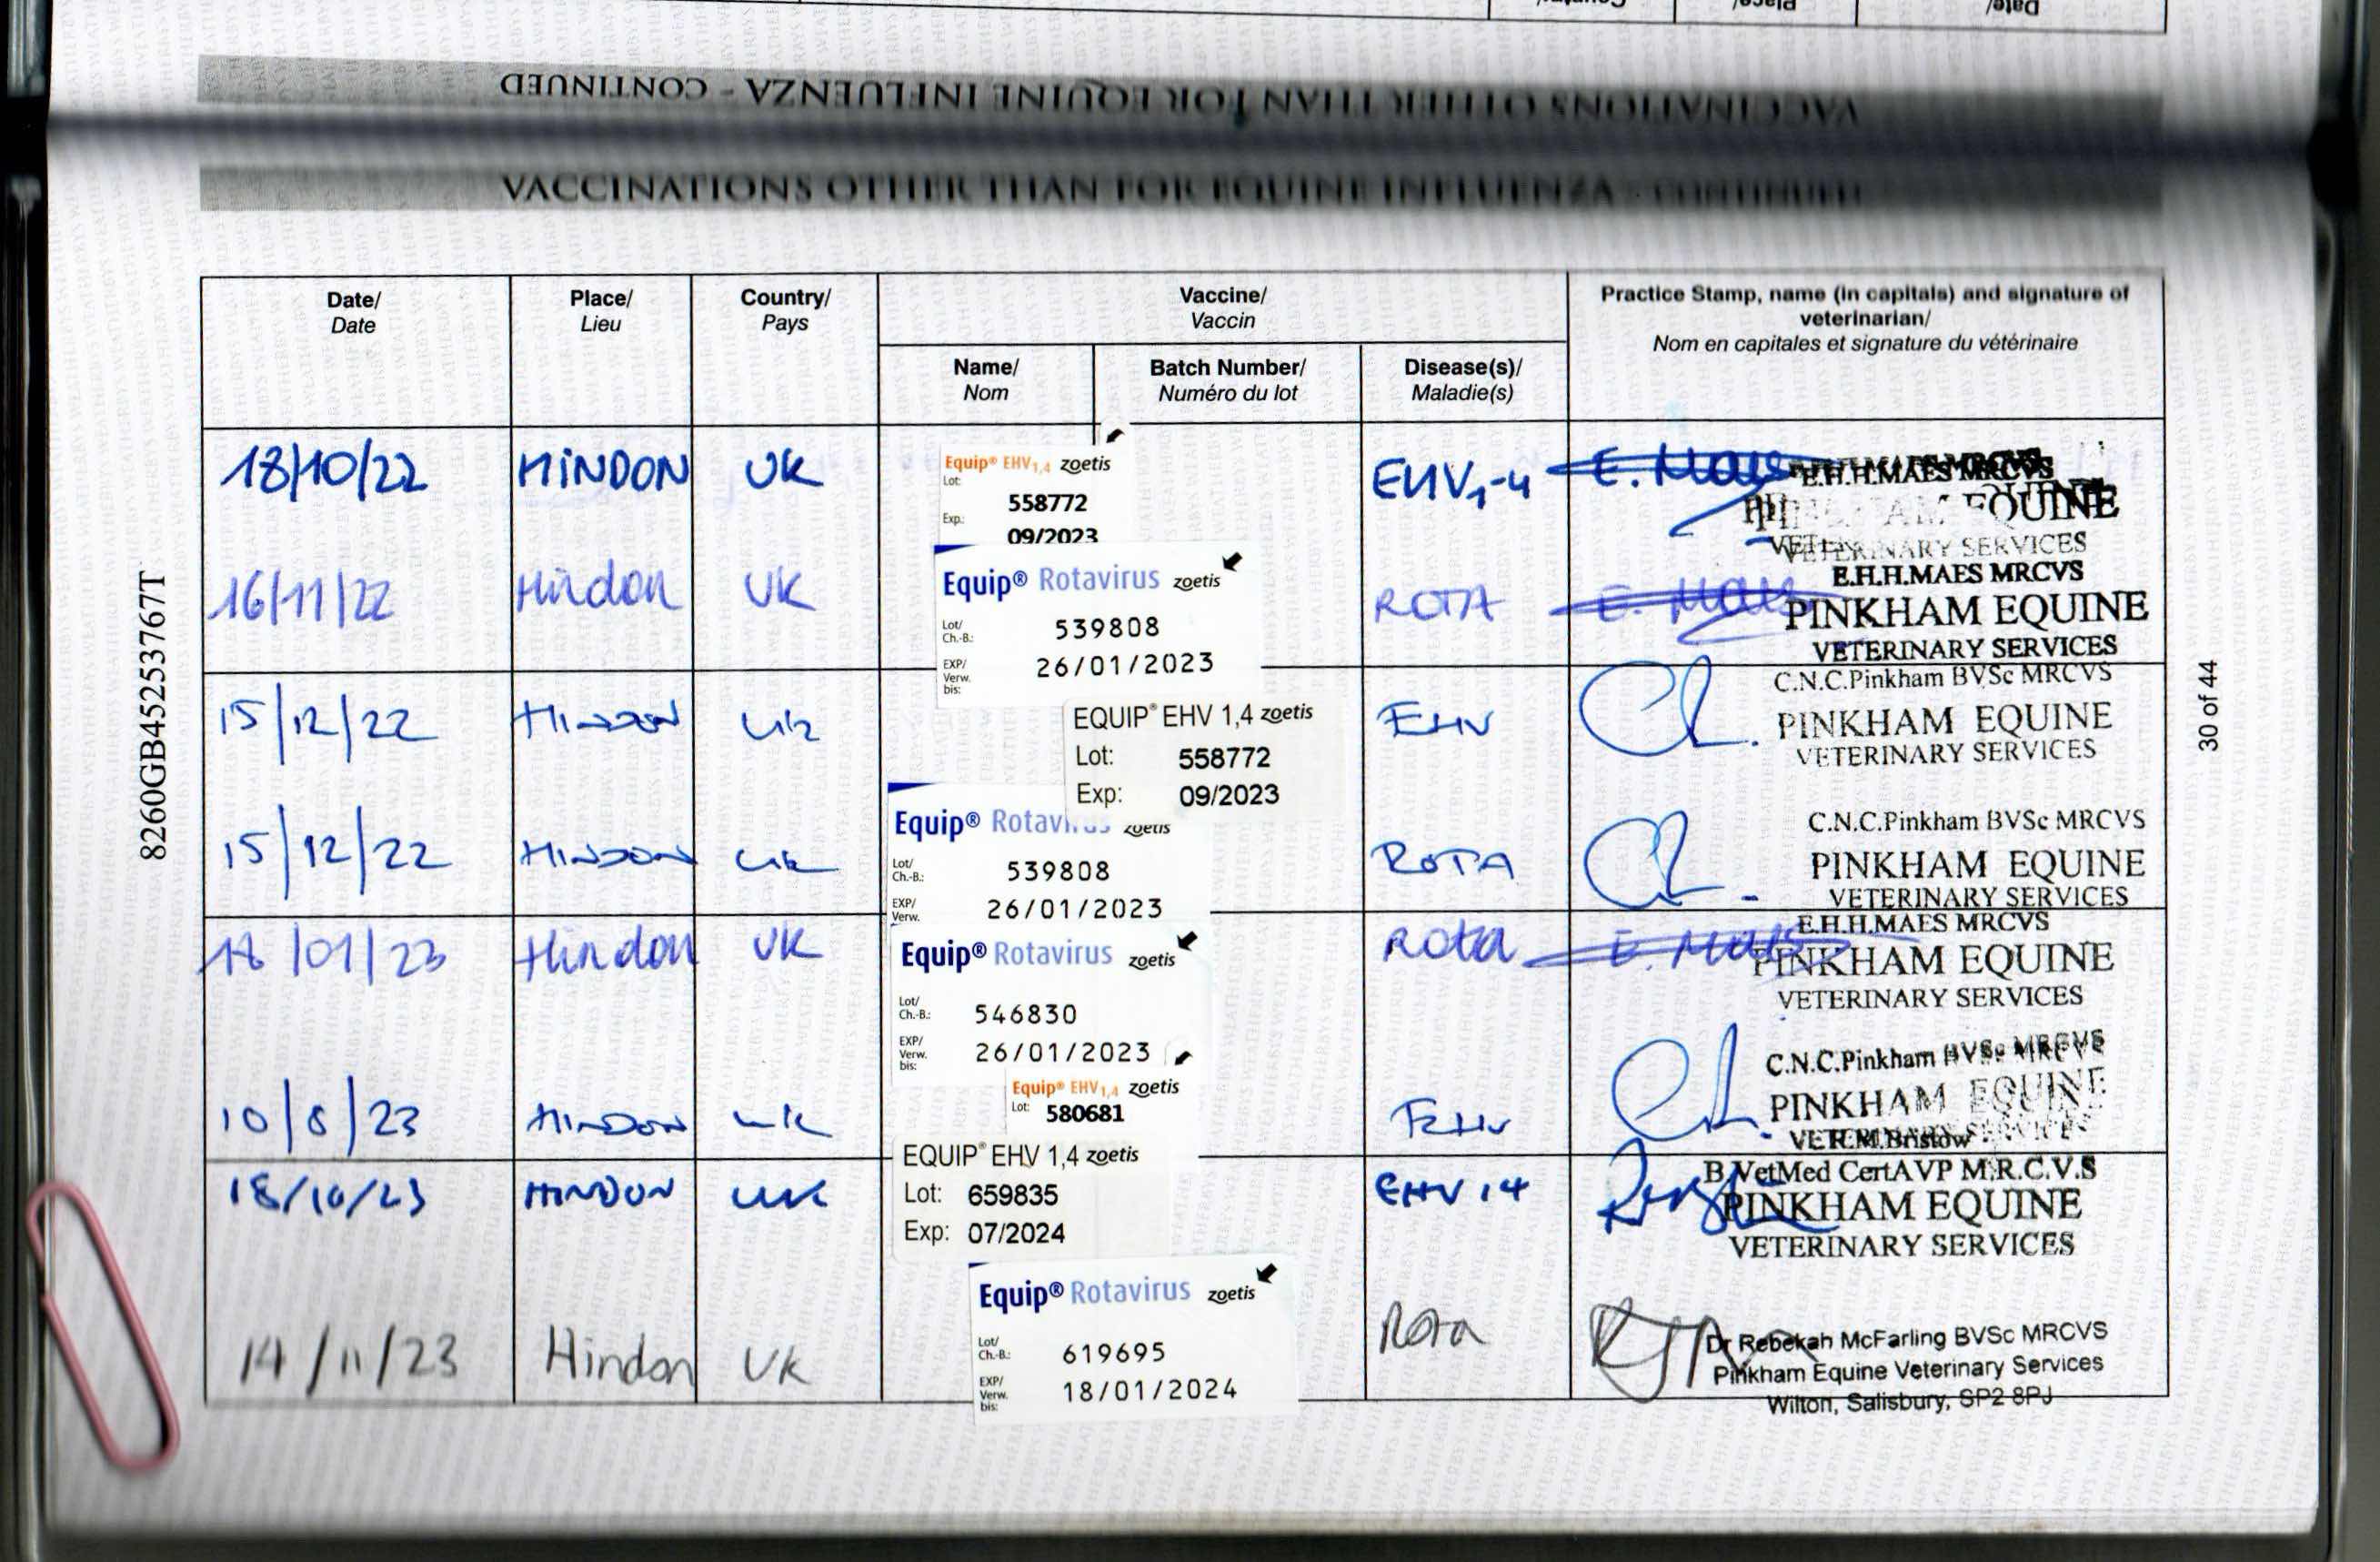 Date/
Place/
VACCINATIONS OTHER THAN FOR EQUINE INFLUENZA - CONTINUED
VACCINATIONS OTHER THAN FOR EQUINE INFLUENZA - CONTINUED
Date/
Date
Place/
Lieu
Country/
Pays
Vaccine/
Vaccin
Name/
Nom
Batch Number/
Numéro du lot
Disease(s)/
Maladie(s)
Practice Stamp, name (in capitals) and signature of
veterinarian/
Nom en capitales et signature du vétérinaire
18/10/22 HINDON UK
Equip® EHV1,4 zoetis
Lot:
558772
Exp.:
09/2023
EHV1-4
E. Maes
E.H.H.MAES MRCVS
PINKHAM EQUINE
VETERINARY SERVICES
16/11/22 Hindon UK
Equip® Rotavirus zoetis
Lot/
Ch.-B.: 539808
EXP/
Verw.
bis: 26/01/2023
ROTA
E. Maes
E.H.H.MAES MRCVS
PINKHAM EQUINE
VETERINARY SERVICES
15/12/22 HINDON UK
EQUIP® EHV 1,4 zoetis
Lot: 558772
Exp: 09/2023
EHV
C.N.C.Pinkham BVSc MRCVS
PINKHAM EQUINE
VETERINARY SERVICES
15/12/22 HINDON UK
Equip® Rotavirus zoetis
Lot/
Ch.-B.: 539808
EXP/
Verw. 26/01/2023
ROTA
C.N.C.Pinkham BVSc MRCVS
PINKHAM EQUINE
VETERINARY SERVICES
/01/23 Hindon UK
Equip® Rotavirus zoetis
Lot/
Ch.-B.: 546830
EXP/
Verw.
bis: 26/01/2023
Rota
E. Maes
E.H.H.MAES MRCVS
PINKHAM EQUINE
VETERINARY SERVICES
10/8/23 HINDON UK
Equip® EHV1,4 zoetis
Lot: 580681
EHV
C.N.C.Pinkham BVSc MRCVS
PINKHAM EQUINE
18/10/23 HINDON UK
EQUIP® EHV 1,4 zoetis
Lot: 659835
Exp: 07/2024
EHV 14
R.M.Bristow
B.VetMed CertAVP M.R.C.V.S
PINKHAM EQUINE
VETERINARY SERVICES
14/11/23 Hindon UK
Equip® Rotavirus zoetis
Lot/
Ch.-B.: 619695
EXP/
Verw.
bis: 18/01/2024
Rota
Dr Rebekah McFarling BVSc MRCVS
Pinkham Equine Veterinary Services
Wilton, Salisbury, SP2 8PJ
8260GB45253767T
30 of 44